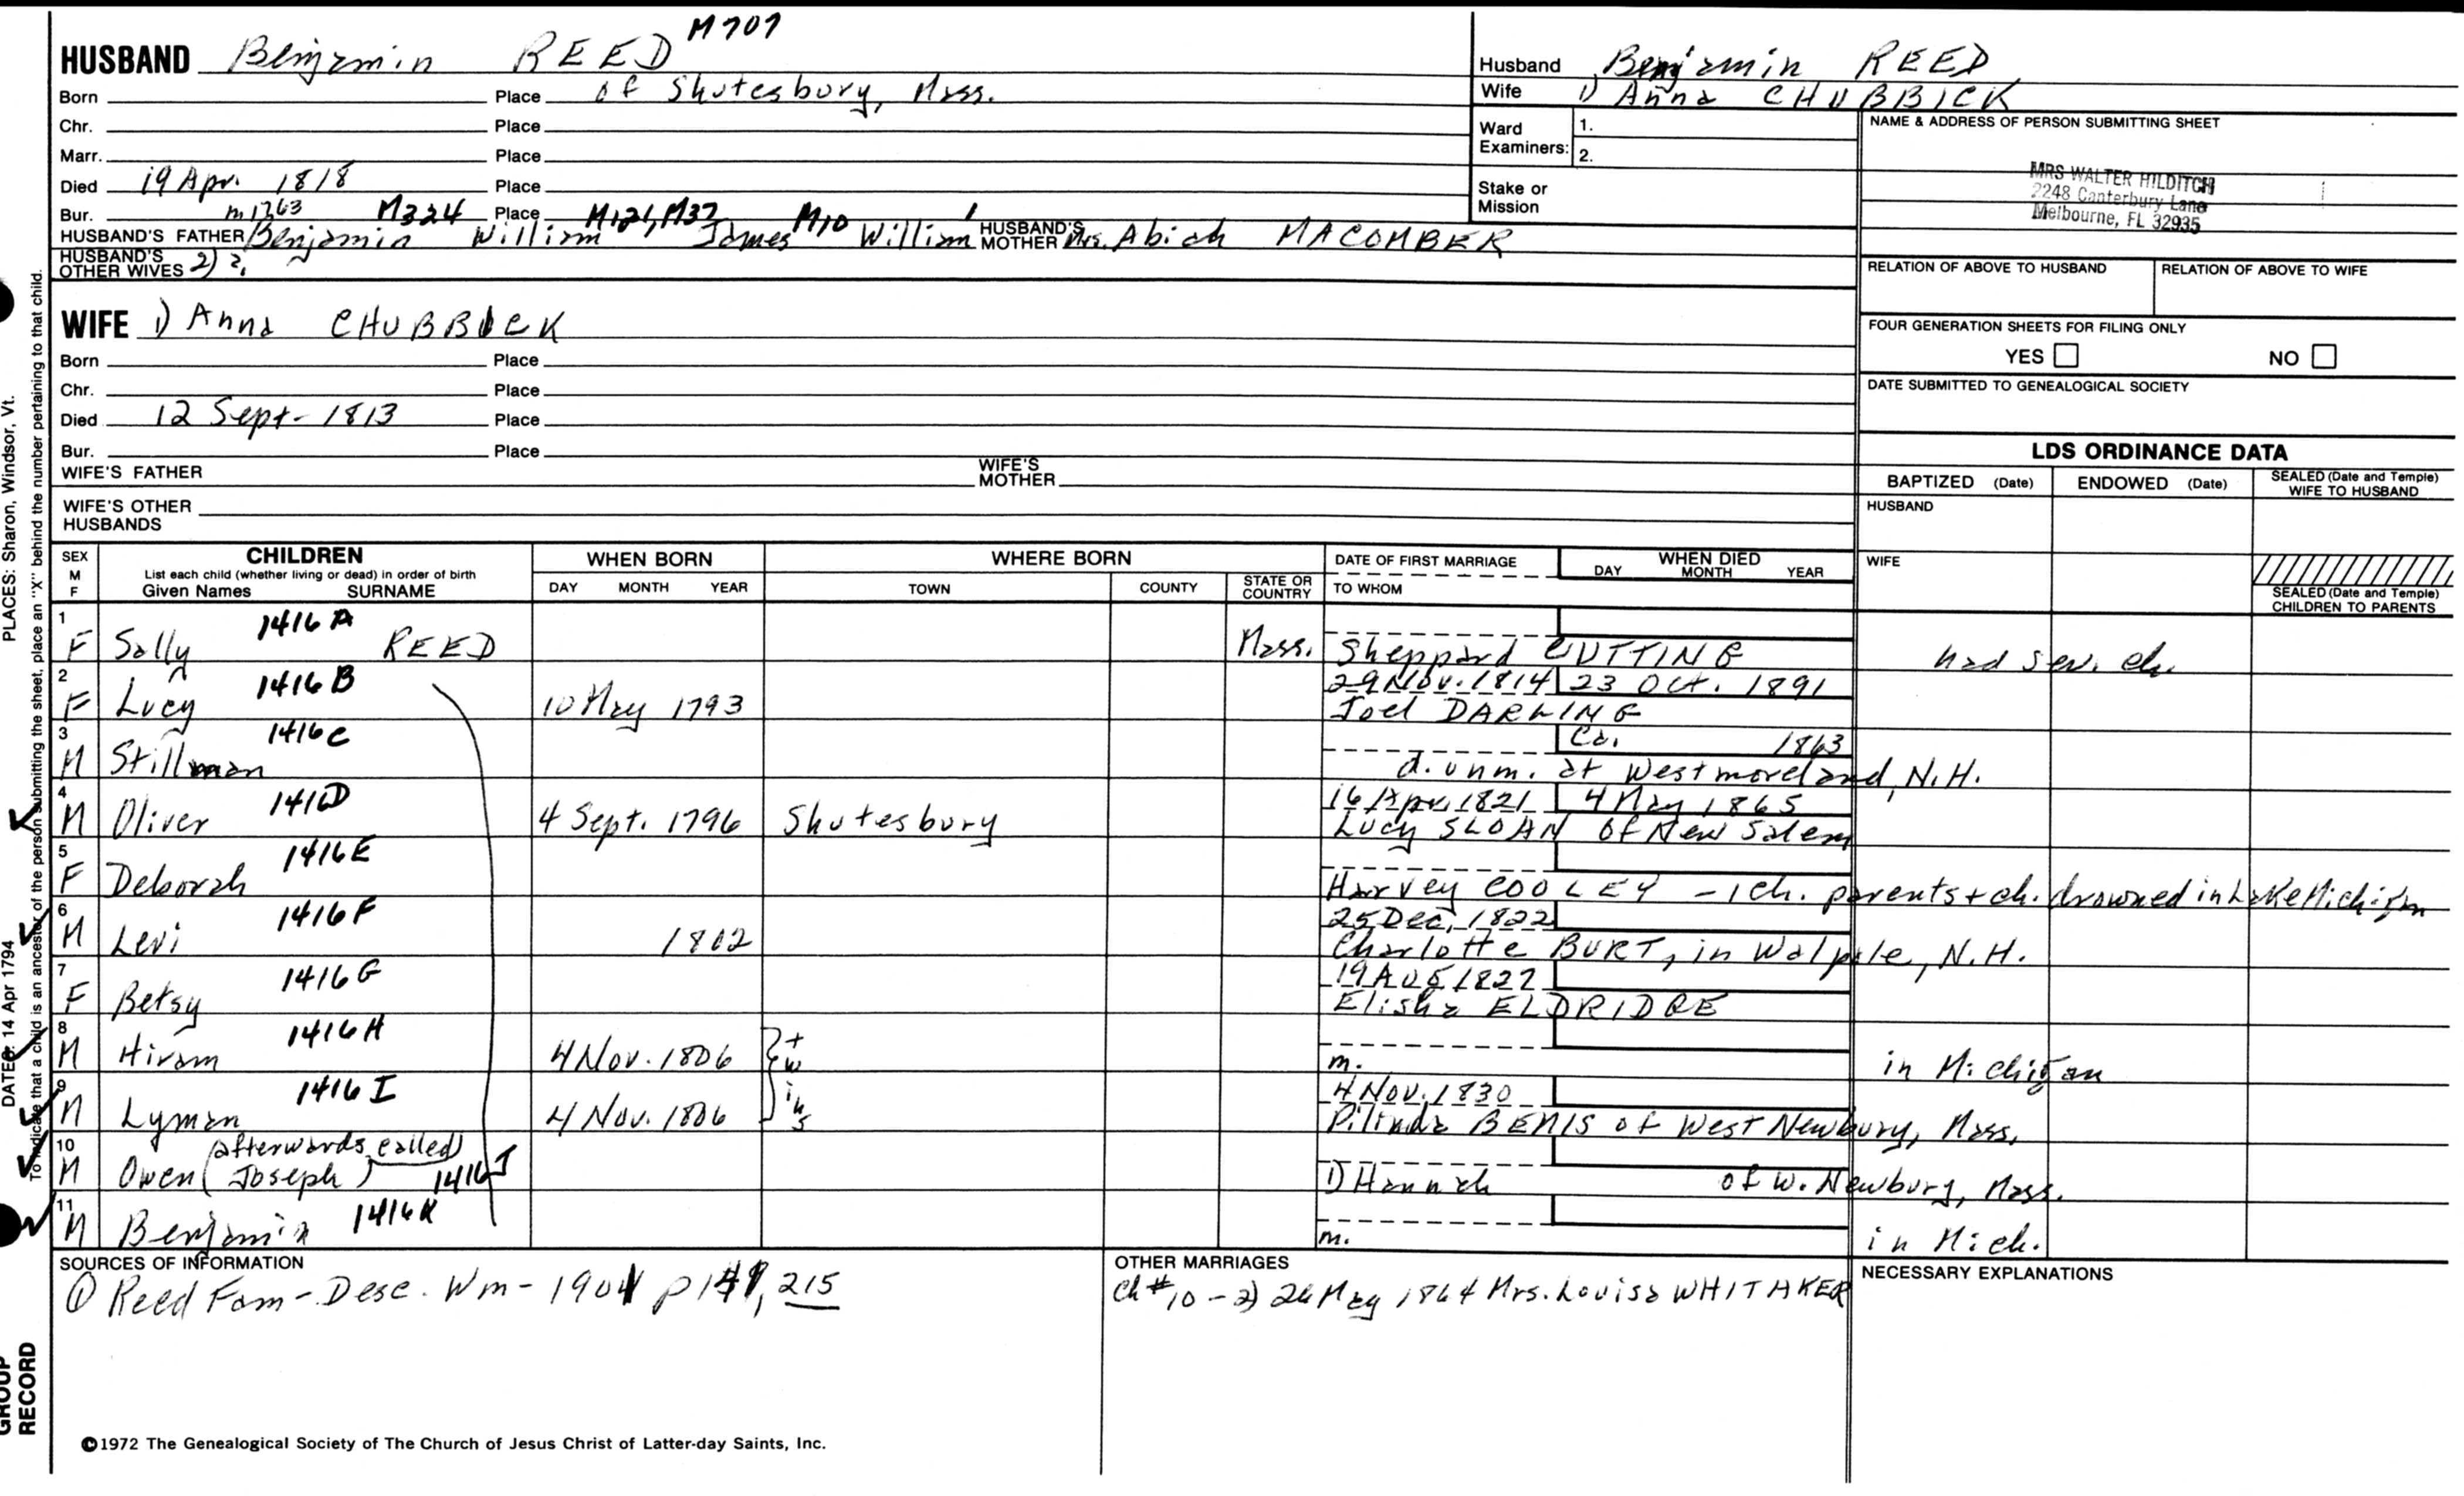 M707
HUSBAND Benjamin REED
Born Place of Shutesbury, Mass.
Chr. Place
Marr. Place
Died 19 Apr. 1818 Place
Bur. m1763 M324 Place M121, M37 M10 1
HUSBAND'S FATHER Benjamin William James William HUSBAND'S MOTHER Mrs. Abiah MACOMBER
HUSBAND'S OTHER WIVES 2) ?
Husband Benjamin REED
Wife 1) Anna CHUBBICK
Ward Examiners: 1.
2.
Stake or Mission
NAME & ADDRESS OF PERSON SUBMITTING SHEET
MRS WALTER HILDITCH
2248 Canterbury Lane
Melbourne, FL 32935
RELATION OF ABOVE TO HUSBAND RELATION OF ABOVE TO WIFE
FOUR GENERATION SHEETS FOR FILING ONLY
YES NO
DATE SUBMITTED TO GENEALOGICAL SOCIETY
WIFE 1) Anna CHUBBUCK
Born Place
Chr. Place
Died 12 Sept- 1813 Place
Bur. Place
WIFE'S FATHER WIFE'S MOTHER
WIFE'S OTHER HUSBANDS
LDS ORDINANCE DATA
BAPTIZED (Date) ENDOWED (Date) SEALED (Date and Temple) WIFE TO HUSBAND
HUSBAND
WIFE
SEALED (Date and Temple) CHILDREN TO PARENTS
SEX M F CHILDREN List each child (whether living or dead) in order of birth Given Names SURNAME
WHEN BORN DAY MONTH YEAR
WHERE BORN TOWN COUNTY STATE OR COUNTRY
DATE OF FIRST MARRIAGE TO WHOM
WHEN DIED DAY MONTH YEAR
1 1416 A
F Sally REED Mass. Sheppard CUTTING had sev. ch.
2 1416 B 29 Nov. 1814 23 Oct. 1891
F Lucy 10 May 1793 Joel DARLING
3 1416 C Ca. 1863
M Stillman d. unm. at Westmoreland, N.H.
4 1416D 16 Apr. 1821 4 May 1865
M Oliver 4 Sept. 1796 Shutesbury Lucy SLOAN of New Salem
5 1416E
F Deborah Harvey COOLEY - 1 ch. parents + ch. drowned in Lake Michigan
6 1416F 25 Dec, 1822
M Levi 1802 Charlotte BURT, in Walpole, N.H.
7 1416 G 19 AUG 1827
F Betsy Elisha ELDRIDGE
8 1416 H
M Hiram 4 Nov. 1806 twins m. in Michigan
9 1416 I 4 Nov. 1830
M Lyman 4 Nov. 1806 BEMIS of West Newbury, Mass.
10 (afterwards called)
M Owen (Joseph) 1416 J 1) Hannah of W. Newbury, Mass.
11 1416 K
M Benjamin m. in Mich.
SOURCES OF INFORMATION
① Reed Fam - Desc. Wm - 1901 p 149, 215
OTHER MARRIAGES
Ch #10 - 2) 26 May 1864 Mrs. Louisa WHITAKER
NECESSARY EXPLANATIONS
©1972 The Genealogical Society of The Church of Jesus Christ of Latter-day Saints, Inc.
PLACES: Sharon, Windsor, Vt.
DATES: 14 Apr 1794
To indicate that a child is an ancestor of the person submitting the sheet, place an "X" behind the number pertaining to that child.
GROUP
RECORD